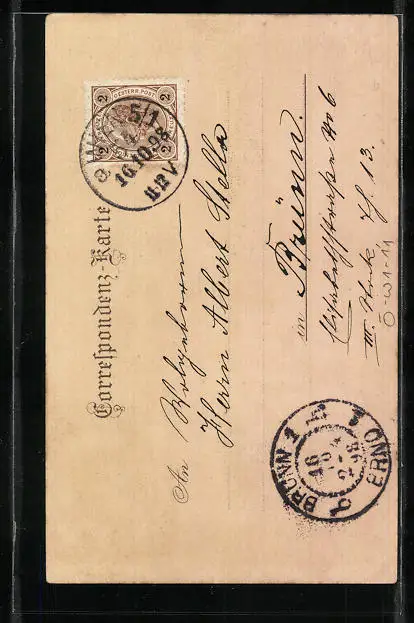 Correspondenz-Karte
2 OESTERR. POST 2
2 2
WIEN 5/1
16.10.98
11-12 V
An Wohlgeboren
Herrn Albert Stella
in Brünn.
No 6
III. Stock T. 13.
Ö-W1-11
BRÜNN
16 10 98
BRNO